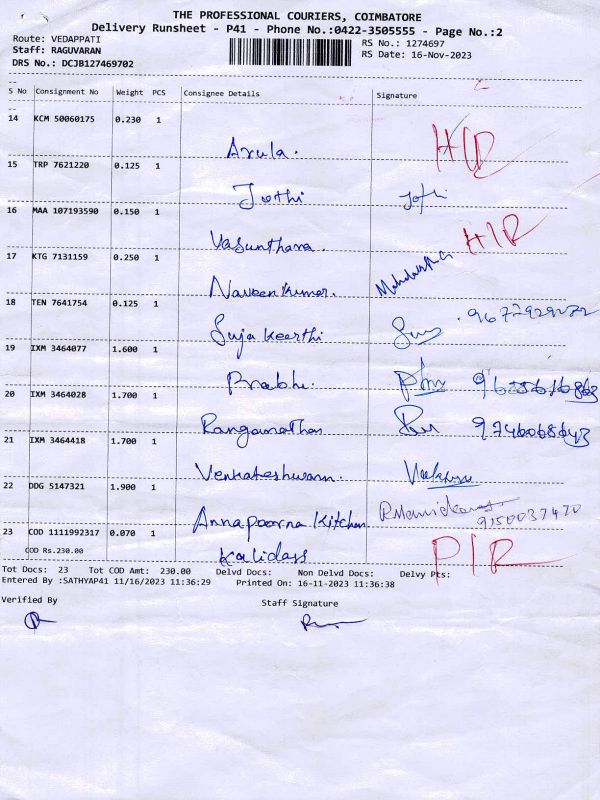 THE PROFESSIONAL COURIERS, COIMBATORE
Delivery Runsheet - P41 - Phone No.:0422-3505555 - Page No.:2
Route: VEDAPPATI RS No.: 1274697
Staff: RAGUVARAN RS Date: 16-Nov-2023
DRS No.: DCJB127469702
S No Consignment No Weight PCS Consignee Details Signature
14 KCM 50060175 0.230 1
Arula.
15 TRP 7621220 0.125 1
Jothi Jothi
16 MAA 107193590 0.150 1
Vasunthara. H/R
17 KTG 7131159 0.250 1
Naveen Kumar.
18 TEN 7641754 0.125 1
Suja Keerthi
19 IXM 3464077 1.600 1
Prabhu.
20 IXM 3464028 1.700 1
Ranganathan 9746068643
21 IXM 3464418 1.700 1
Venkateshwaran.
22 DDG 5147321 1.900 1
Annapoorna Kitchen 9150037470
23 COD 1111992317 0.070 1
COD Rs.230.00 Kalidass P/R
Tot Docs: 23 Tot COD Amt: 230.00 Delvd Docs: Non Delvd Docs: Delvy Pts:
Entered By :SATHYAP41 11/16/2023 11:36:29 Printed On: 16-11-2023 11:36:38
Verified By Staff Signature